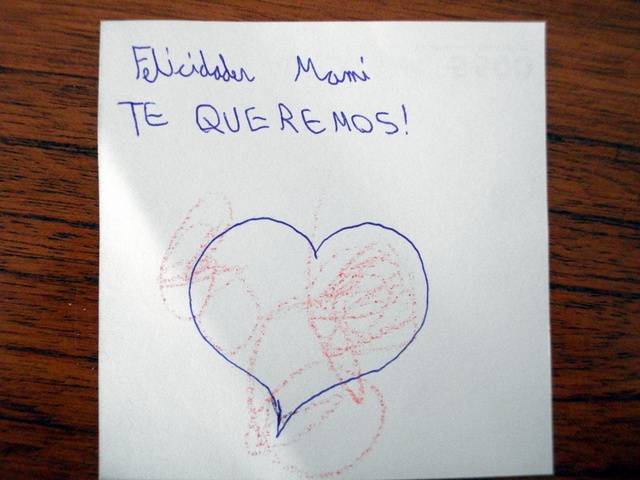 Felicidades Mami
TE QUEREMOS!